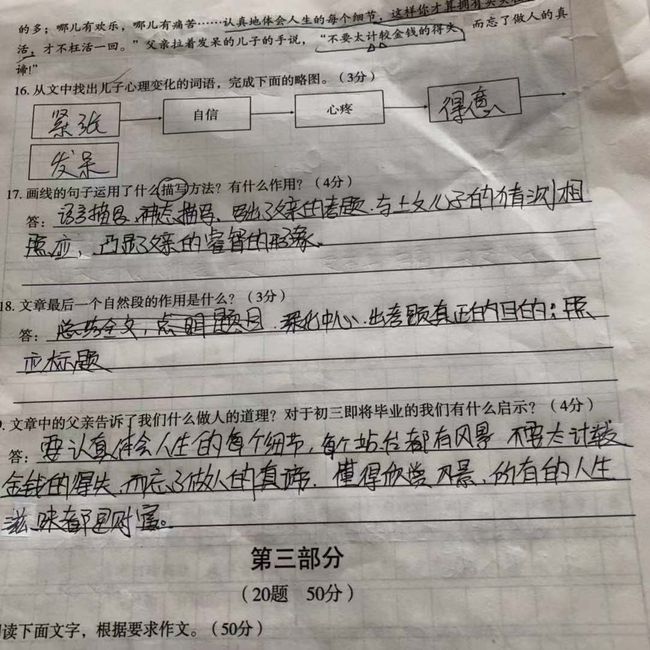 的多；哪儿有欢乐，哪儿有痛苦……认真地体会人生的每个细节，这样你才算拥有
活，才不枉活一回。”父亲拉着发呆的儿子的手说，“不要太计较金钱的得失，而忘了做人的真
谛!”
16. 从文中找出儿子心理变化的词语，完成下面的略图。（3分）
紧张 自信 心疼 得意
发呆
17. 画线的句子运用了什么描写方法？有什么作用？（4分）
答：语言描写，神态描写，写出了父亲的考题，与上文儿子的猜测相
照应，凸显了父亲的睿智的形象。
18. 文章最后一个自然段的作用是什么？（3分）
答：总结全文，点明题目，深化中心，出考题真正的目的；照
应标题
. 文章中的父亲告诉了我们什么做人的道理？对于初三即将毕业的我们有什么启示？（4分）
答：要认真体会人生的每个细节，每个站台都有风景，不要太计较
金钱的得失，而忘了做人的真谛，懂得欣赏风景，所有的人生
滋味都是财富。
第三部分
（20题 50分）
读下面文字，根据要求作文。（50分）